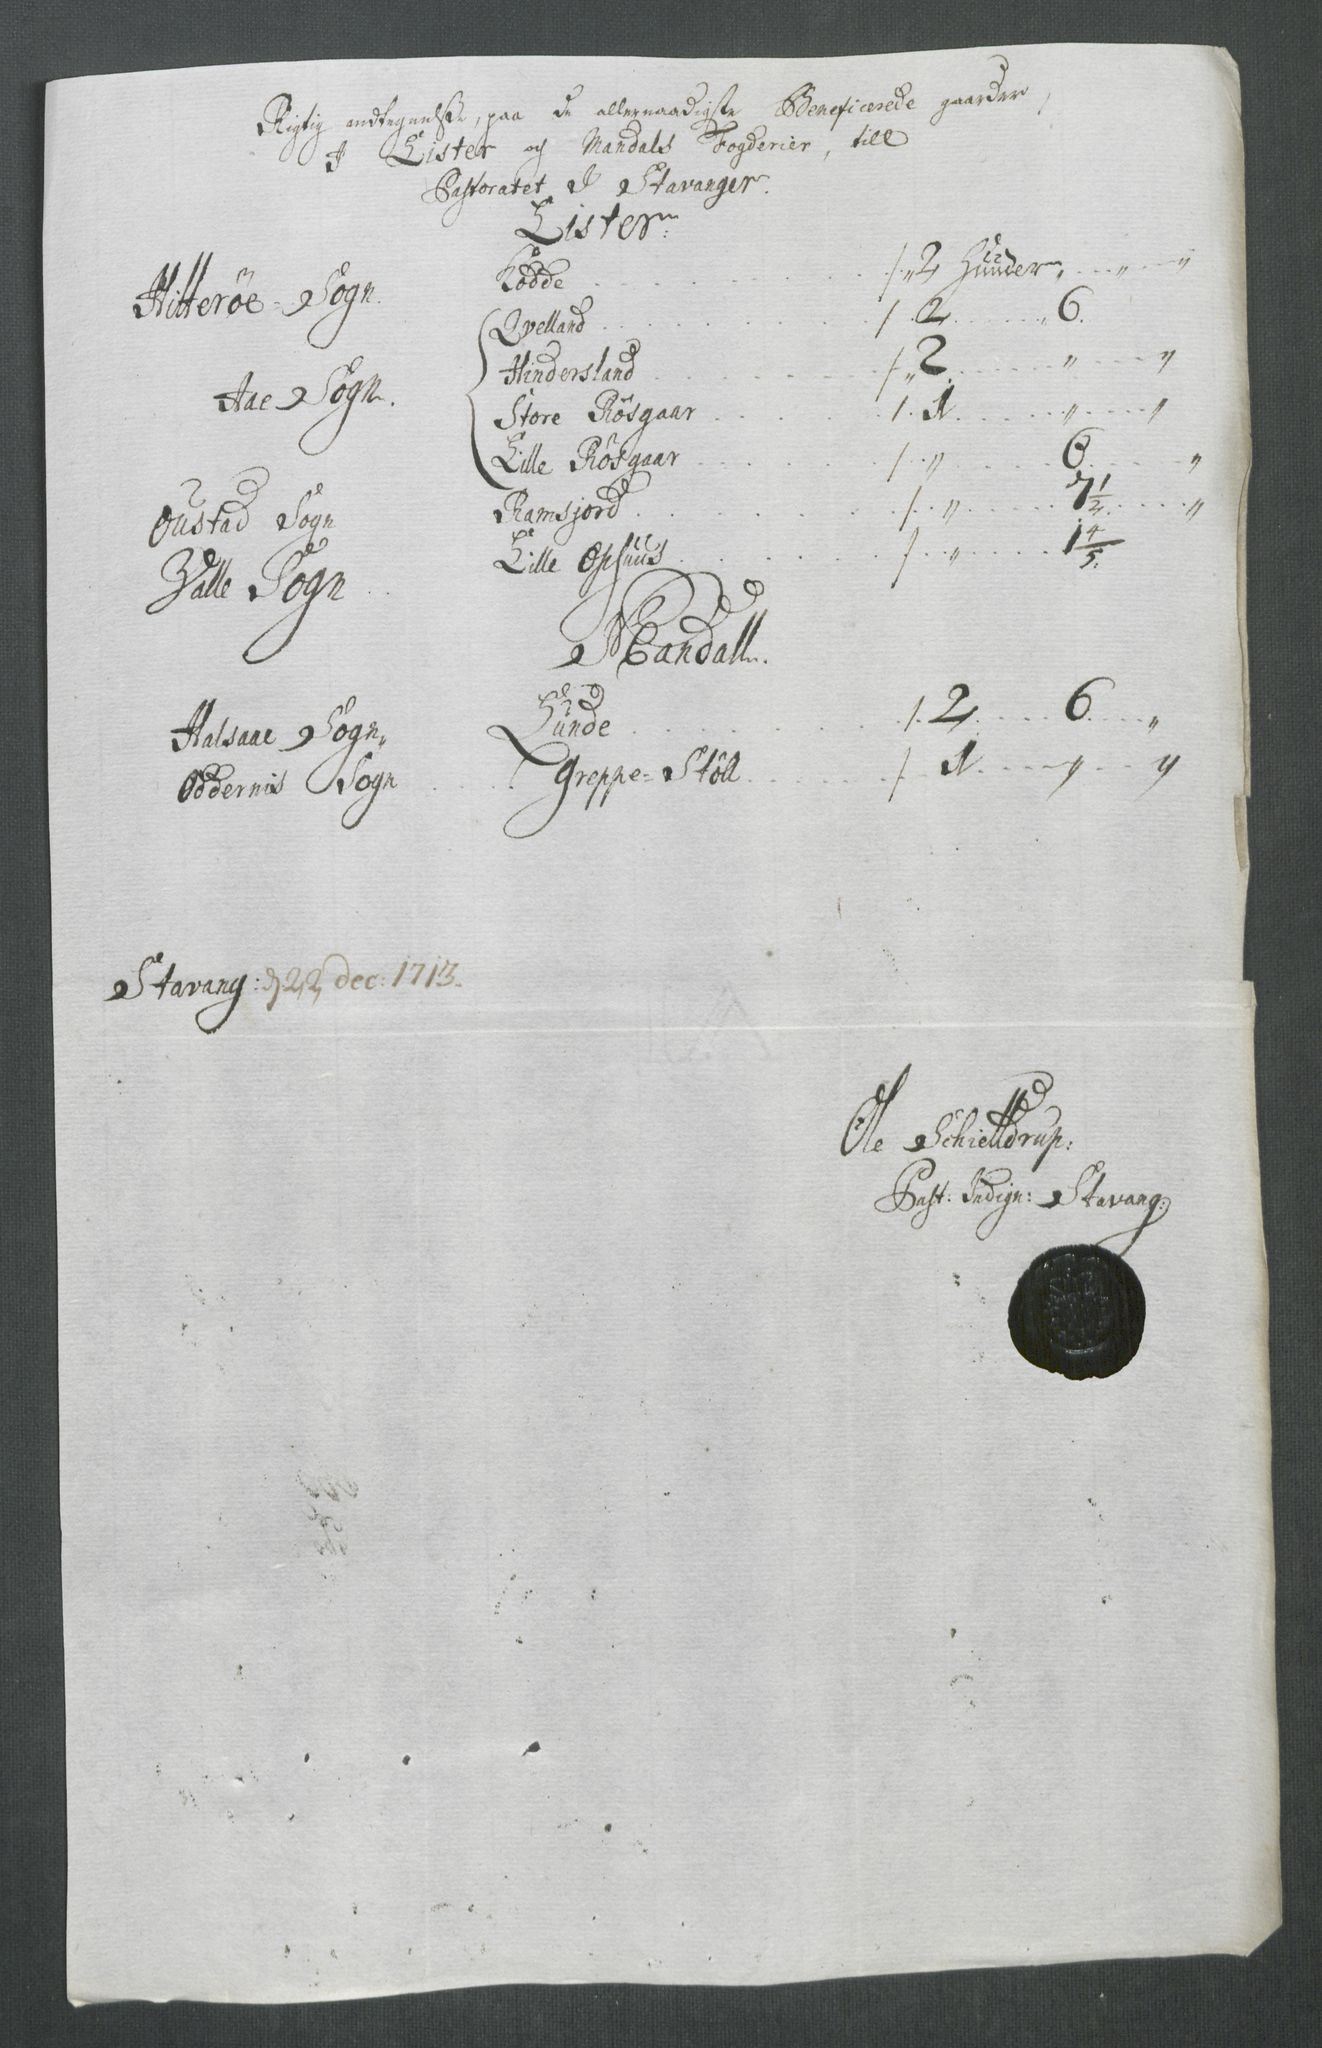 Rigtig andtegnelse, paa de allernaadigste Beneficerede gaarder,
I Lister og Mandals Fogderier, till
Pastoratet I Stavanger.
Lister:
Hitteröe-Sogn. Rödde / „ 2 Hunder „ „
Qvelland / 2 „ 6.
Aae Sogn. Hindersland / „ 2 „ „
Store Rösgaar / 1 „ „
Lille Rösgaar / „ 6 „
Oustad Sogn Ramsjord / „ 7 1/2 „
Valle Sogn Lille Ophuus / „ 1 4/5.
Mandall.
Halsaae Sogn „ Lunde / 2 6 „
Oddernis Sogn Greppe-Stöll / 1 „ „
Stavang: d 22 dec: 1713.
Ole Schielldrup:
Past: Indign: Stavang: